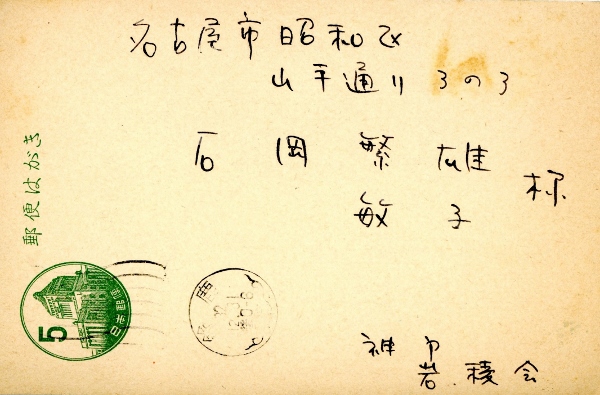 名古屋市昭和区
山手通り3の3
石岡繁雄
敏子
様
神戸
岩稜会
郵便はがき
5
日本郵便